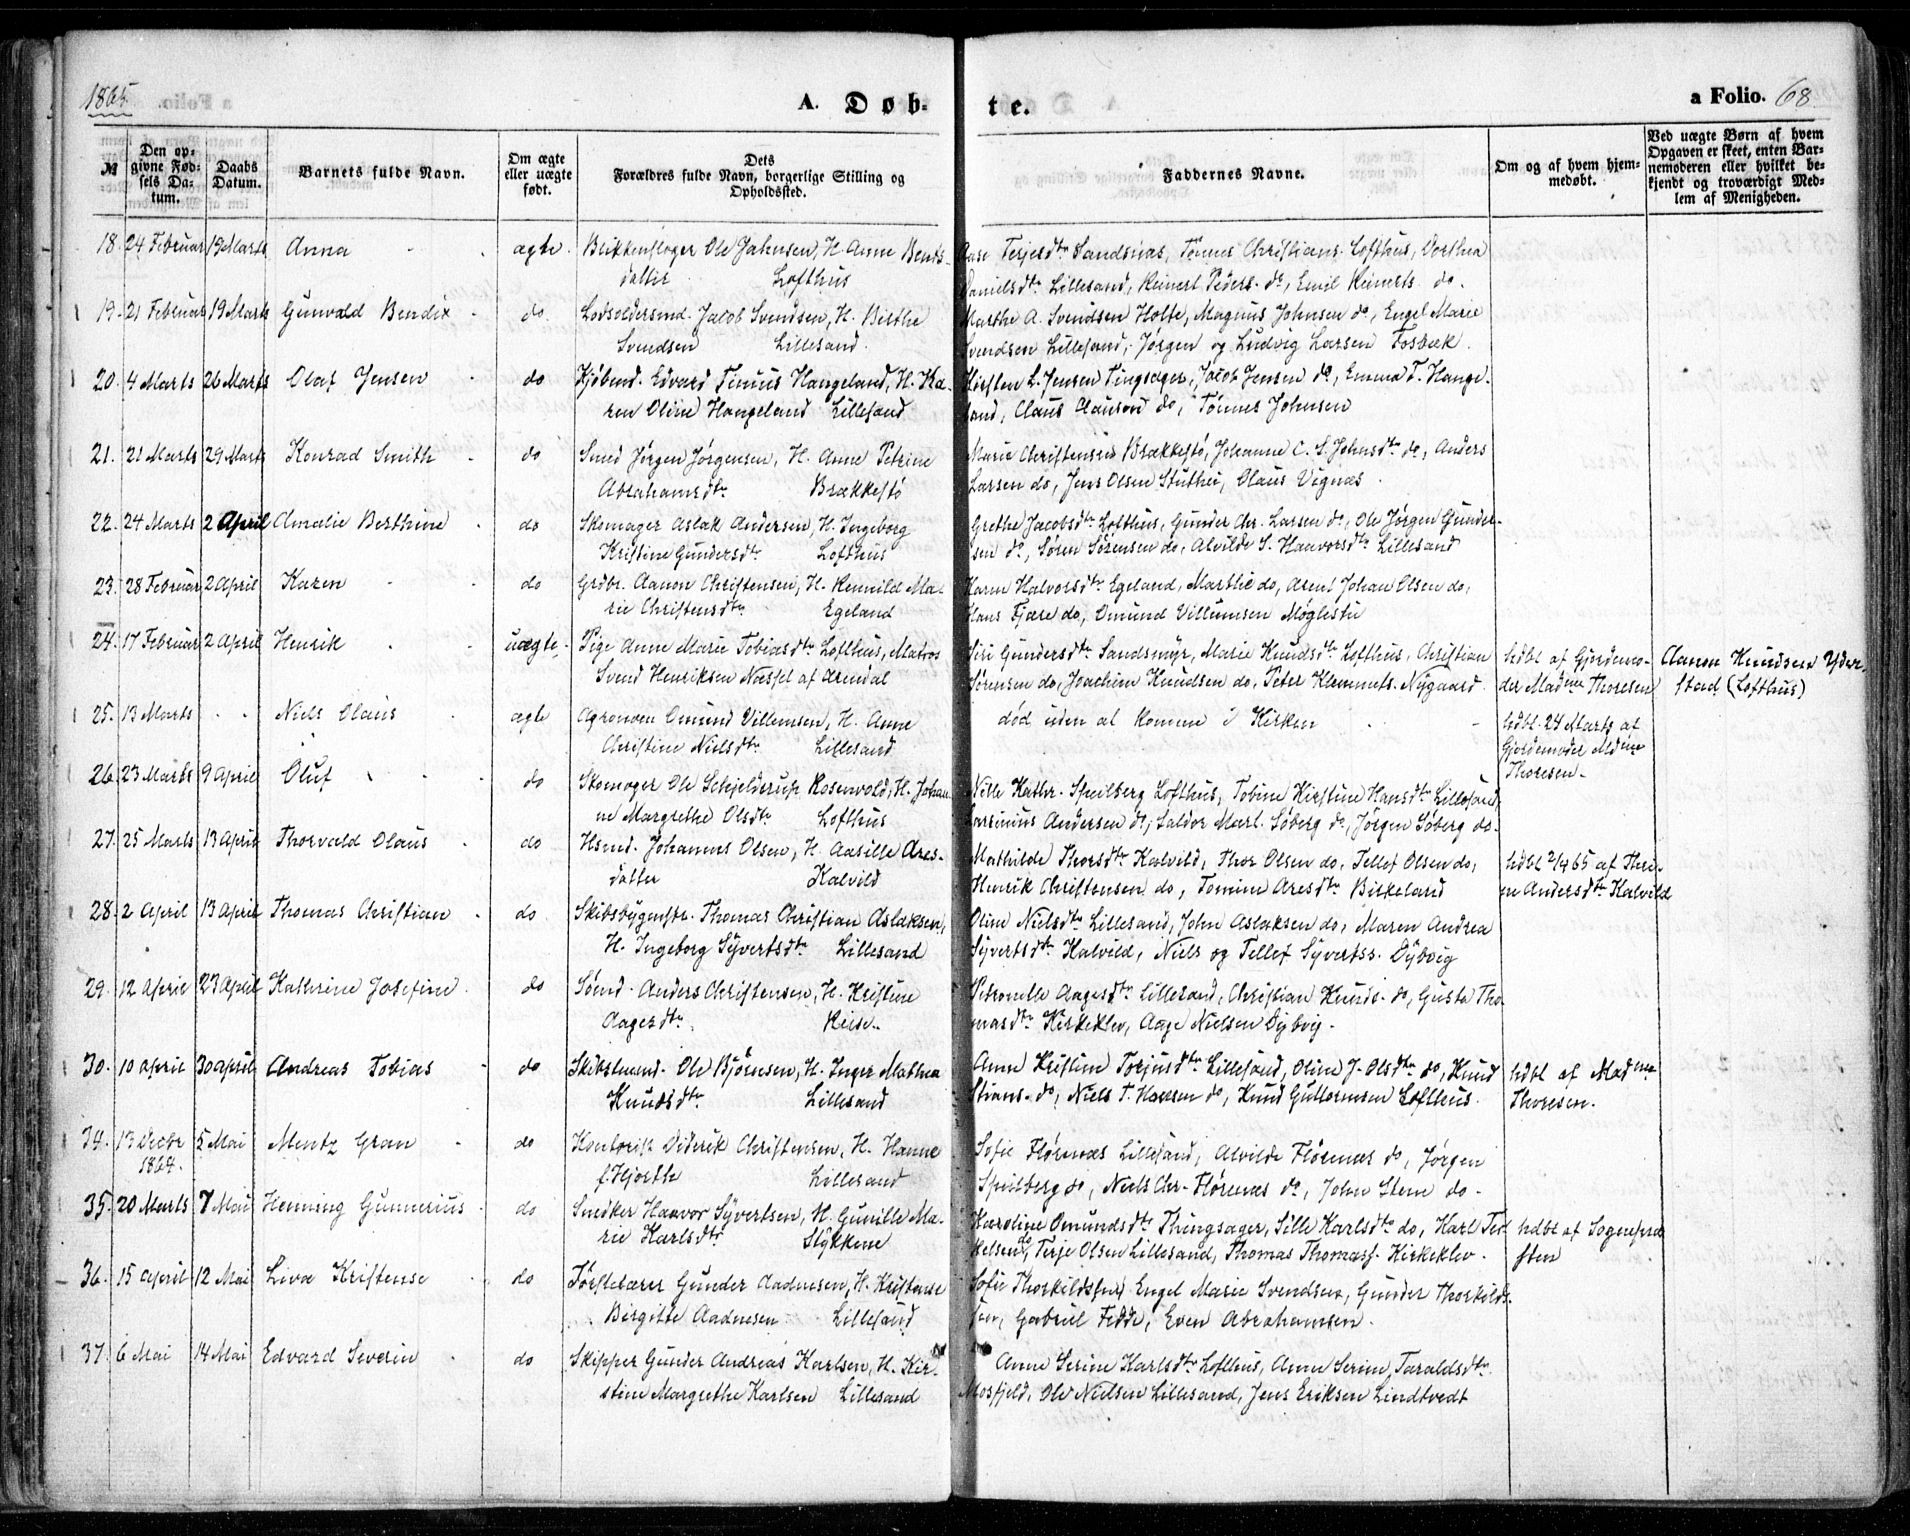 1865. A. Døb- te. a Folio. 68.
№ Den opgivne Fødsels Datum. Daabs Datum. Barnets fulde Navn. Om ægte eller uægte født. Dets Forældres fulde Navn, borgerlige Stilling og Opholdssted. Faddernes Navne. Om og af hvem hjemmedøbt. Ved uægte Børn af hvem Opgaven er skeet, enten Barnemoderen eller hvilket bekjendt og troværdigt Medlem af Menigheden.
18. 24 Februar 19 Marts Anna ægte. Blikkenslager Ole Jahnsen, H. Anne Bends- Aase Terjesdtr Sandsnæs, Tønnes Christians. Lofthus, Dorthea
datter Lofthus Danielsdtr Lillesand, Reinert Peders. do, Emil Reinerts. do.
19. 21 Februar 19 Marts Gunvald Bendix do. Lodsoldersmd. Jacob Svendsen, H. Birthe Marthe A. Svendsen Holte, Magnus Johnsen do, Engel Marie
Svendsen Lillesand. Svendsen Lillesand, Jørgen og Ludvig Larsen Fosbæk.
20. 4 Marts 26 Marts Olaf Jensen do Kjøbmd. Edvard Tinius Hangeland, H. Ka- Kirsten L. Jensen Tingsager, Jacob Jensen do, Emma T. Hange-
ren Oline Hangeland Lillesand land, Claus Clauson do, Tønnes Johnsen
21. 21 Marts 29 Marts Konrad Smith do Smed Jørgen Jørgensen, H. Anne Petrine Marie Christensen Brækkestø, Johanne C. S. Johnsdtr do, Anders
Abrahamsdtr Brækkestø Larsen do, Jens Olsen Stuthei, Olaus Vignæs.
22. 24 Marts 2 April Amalie Berthine do Skomager Aslak Andersen, H. Ingeborg Grethe Jacobsdtr Lofthus, Gunder Chr. Larsen do, Ole Jørgen Gunder-
Kristine Gundersdtr Lofthus sen do, Søren Sørensen do, Alvilde S. Haavorsdtr Lillesand
23. 28 Februar 2 April Karen do Grdbr. Aanon Christensen, H. Rennild Ma- Karen Halvorsdtr Egeland, Marthe do, Arent Johan Olsen do,
rie Christensdtr Egeland Hans Fjære do, Omund Villumsen Møglestu
24. 17 Februar 2 April Henrik uægte. Pige Anne Marie Tobiasdtr Lofthus, Matros Siri Gundersdtr Sandsmyr, Marie Knudsdtr Lofthus, Christian hdbt af Gjordemo- Aanon Knudsen Yder
Svend Henriksen Næssel af Arendal Sørensen do, Joachim Knudsen do, Peter Klemmets. Nygaard. der Madme Thoresen stad (Lofthus)
25. 13 Marts Niels Olaus ægte Agronom Omund Villemsen, H. Anne død uden at komme i Kirken hdbt. 24 Marts af
Christine Nielsdtr Lillesand Gjordemoder Mdme
26. 23 Marts 9 April Oluf do Skomager Ole Schjelderup Rosenvold, H. Johan- Nille Kathr. Speilberg Lofthus, Tobine Kirstine Hansdtr Lillesand, Thoresen.
ne Margrethe Olsdtr Lofthus Larsinius Andersen do, Saldor Mart. Søberg do, Jørgen Søberg do.
27. 25 Marts 13 April Thorvald Olaus do Hsmd. Johannes Olsen, H. Aasille Ares- Mathilde Thorsdtr Kalvild, Thor Olsen do, Tellef Olsen do, hdbt 2/4 65 af Thri-
datter Kalvild Henrik Christensen do, Tomine Aresdtr Birkeland ne Andersdtr Kalvild
28. 2 April 13 April Thomas Christian do. Skibsbygmstr. Thomas Christian Aslaksen, Oline Nielsdtr Lillesand, John Aslaksen do, Maren Andrea
H. Ingeborg Syvertsdtr Lillesand Syvertsdtr Kalvild, Niels og Tellef Syvertss. Dybvig
29. 12 April 23 April Kathrine Josefine do Sømd. Anders Christensen, H. Kristine Petronelle Aagesdtr Lillesand, Christian Knuds. do, Gusta Tho-
Aagesdtr Heise.. masdtr Kirkeklev, Aage Nielsen Dybvig.
30. 10 April 30 April Andreas Tobias do Skibstmmd. Ole Bjørnsen, H. Inger Mathea Anne Kristine Terjusdtr Lillesand, Oline J. Olsdtr do, Knud hdbt af Madme
Knudsdtr Lillesand Stians. do, Niels T. Hansen do, Knud Guttormsen Lofthus. Thoresen.
34. 13 Decbr 5 Mai Mentz Gran do Kontorist Diderik Christensen, H. Hanne Sofie Flørenæs Lillesand, Alvilde Flørenæs do, Jørgen
1864. f. Hjorth Lillesand Speilberg do, Niels Chr. Flørenæs do, John Steen do.
35. 20 Marts 7 Mai Henning Gunnerius do Snedker Haavor Syvertsen, H. Gunille Ma- Karoline Omundsdtr Thingsager, Sille Karlsdtr do, Karl Ter- hdbt af Sognepræ
rie Karlsdtr Stykkene kelsen do, Terje Olsen Lillesand, Thomas Thomass. Kirkeklev. sten
36. 15 April 12 Mai Liva Kristense do Førstelærer Gunder Aadnesen, H. Kristense Sofie Thorkildssen, Engel Marie Svendsen, Gunder Thorkilds-
Birgitte Aadnesen Lillesand sen, Gabriel Fedde, Even Abrahamsen.
37. 6 Mai 14 Mai Edvard Severin do Skipper Gunder Andreas Karlsen, H. Kir- Anne Serine Karlsdtr Lofthus, Anne Serine Taraldsdtr
stine Margrethe Karlsen Lillesand Mosfjeld, Ole Nielsen Lillesand, Jens Eriksen Lindtvedt